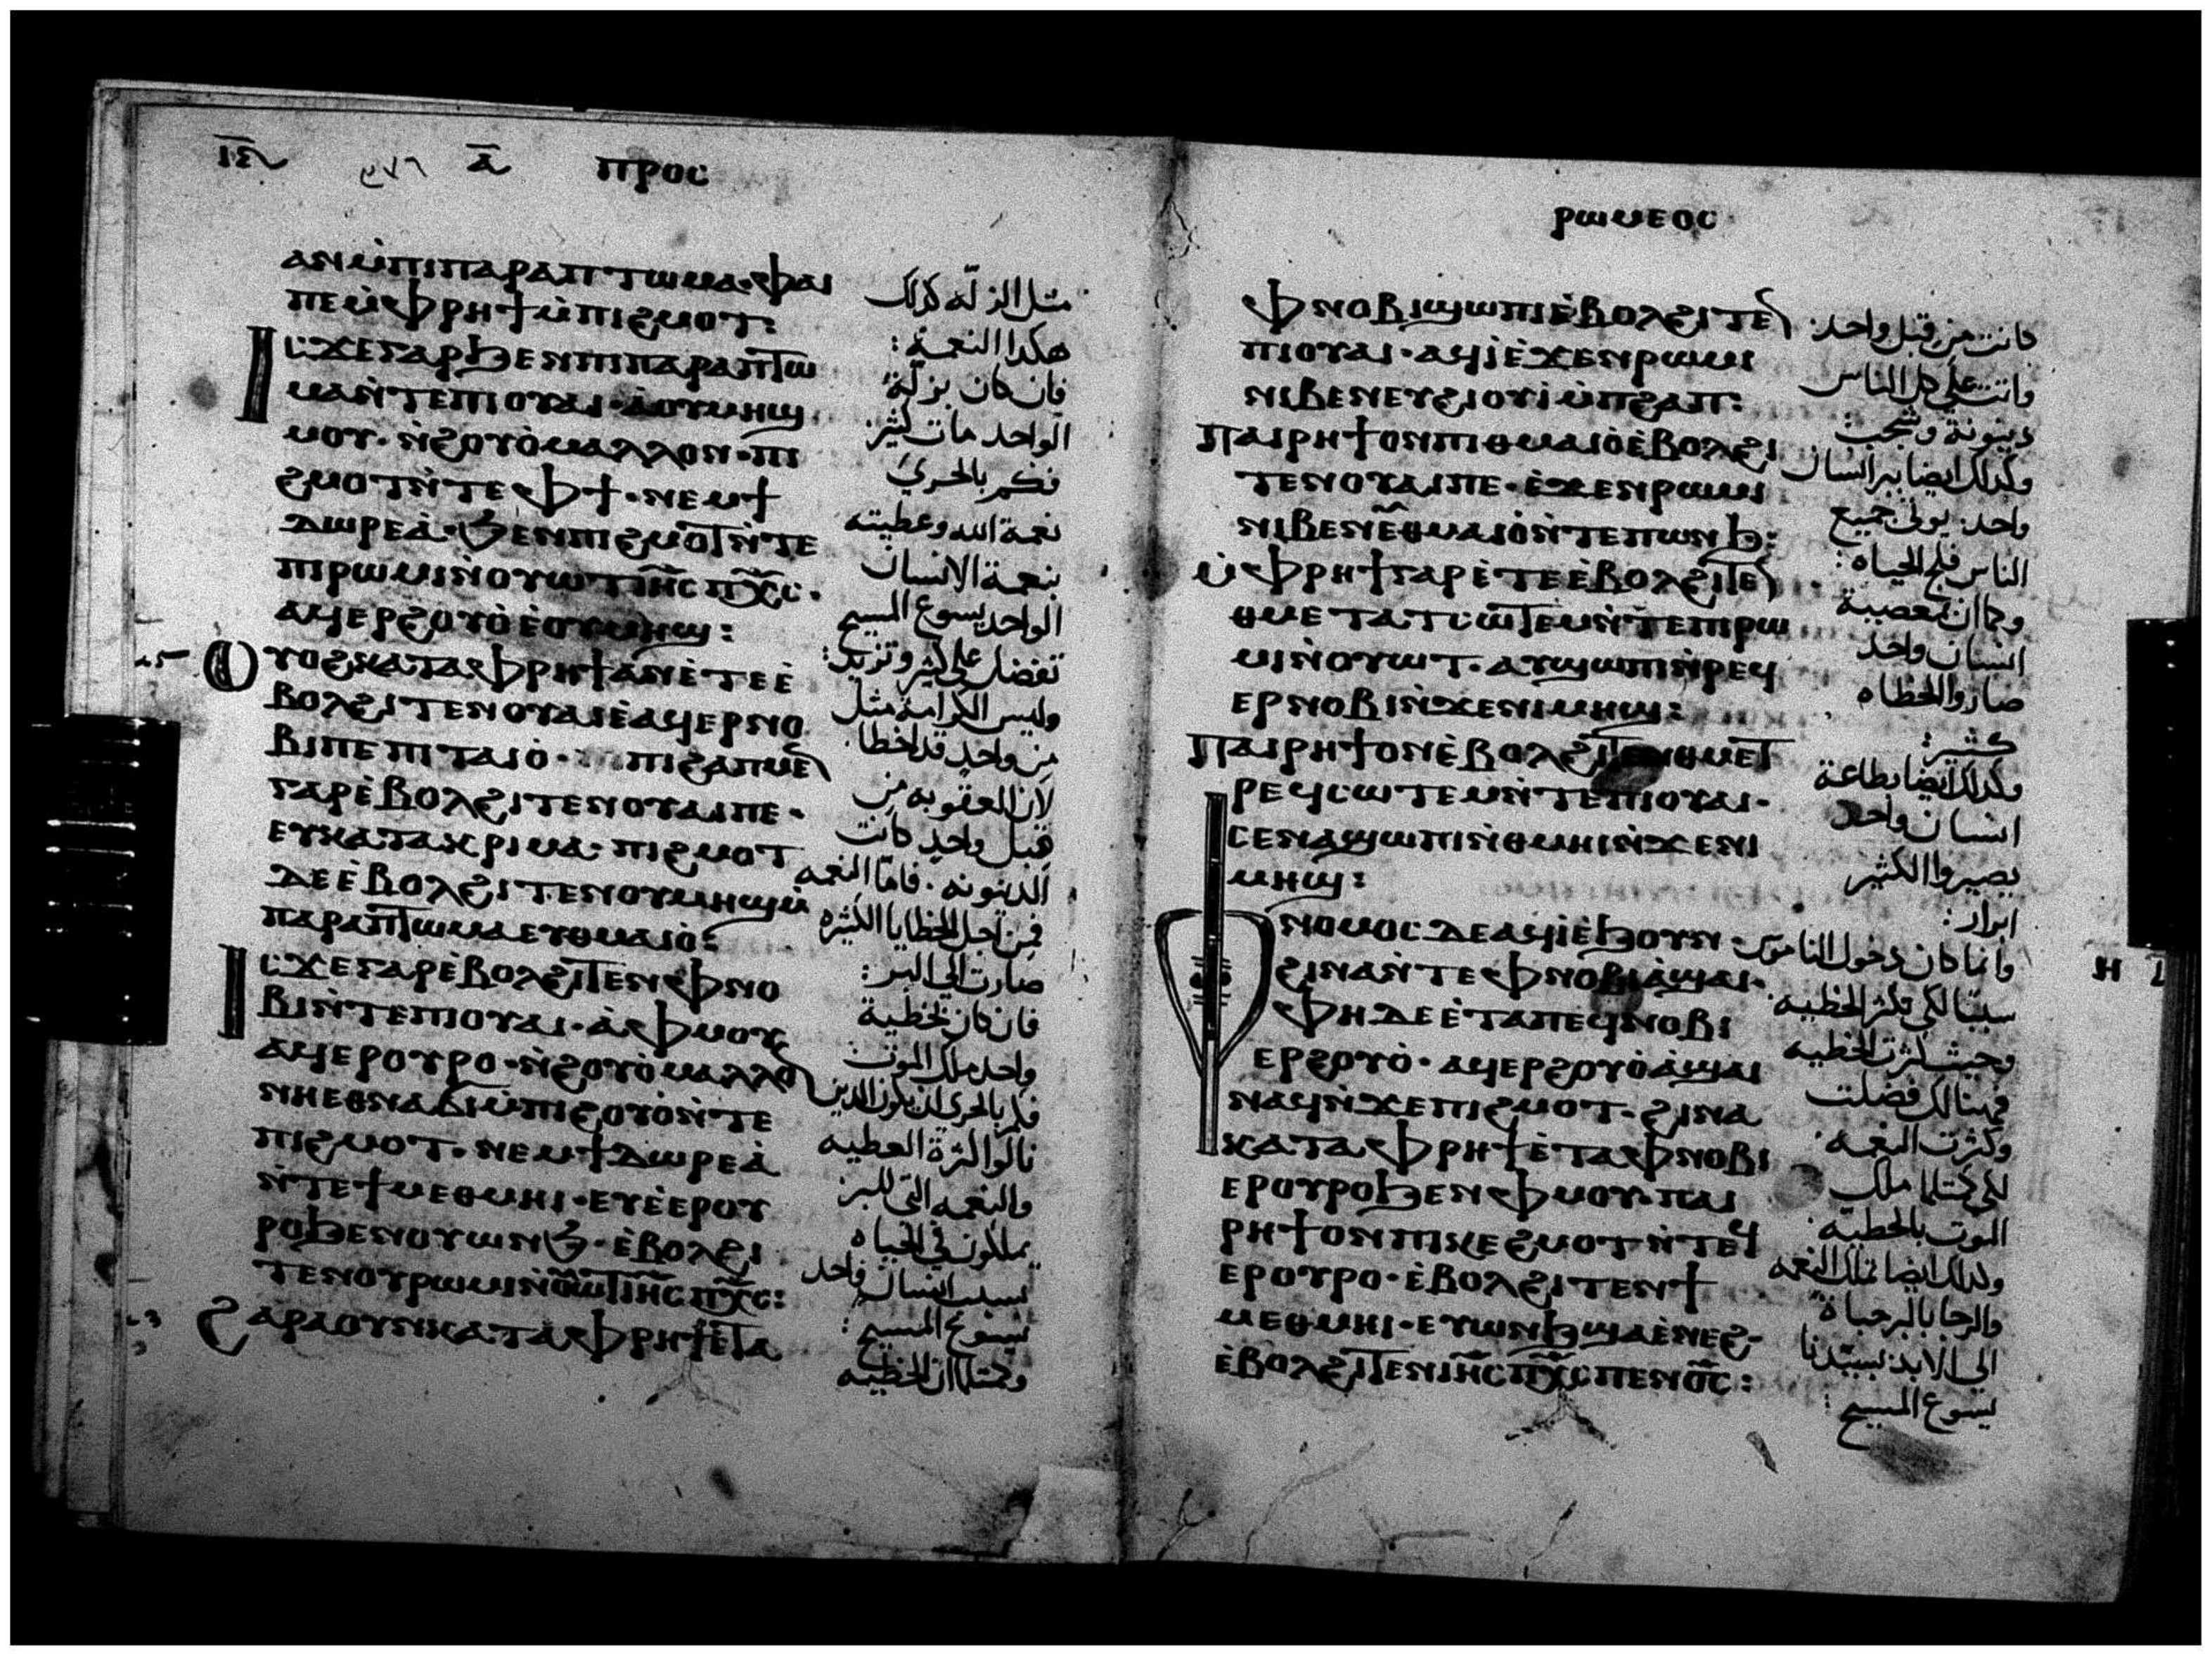 ⲓⲉ̅ ⲁ̅ ⲡⲣⲟⲥ
ⲁⲛⲙ̀ⲡⲓⲡⲁⲣⲁⲡⲧⲱⲙⲁ·ⲫⲁⲓ
ⲡⲉⲙ̀ⲫⲣⲏϯⲙ̀ⲡⲓϩⲙⲟⲧ:
Ⲓⲥϫⲉⲅⲁⲣϧⲉⲛⲡⲓⲡⲁⲣⲁⲡⲧⲱ
ⲙⲁⲛ̀ⲧⲉⲡⲓⲟⲩⲁⲓ·ⲁ̀ⲟⲩⲙⲏϣ
ⲙⲟⲩ·ⲛ̀ϩⲟⲩⲟ̀ⲙⲁⲗⲗⲟⲛ·ⲡⲓ
ϩⲙⲟⲧⲛ̀ⲧⲉⲫϯ·ⲛⲉⲙϯ
ⲇⲱⲣⲉⲁ̀·ϧⲉⲛⲡⲓϩⲙⲟⲧⲛ̀ⲧⲉ
ⲡⲓⲣⲱⲙⲓⲛ̀ⲟⲩⲱⲧⲓⲏ̅ⲥ̅ⲡⲭ̅ⲥ̅·
ⲁϥⲉⲣϩⲟⲩⲟ̀ⲉ̀ⲟⲩⲙⲏϣ:
Ⲟⲩⲟϩⲕⲁⲧⲁⲫⲣⲏϯⲁⲛⲉ̀ⲧⲉⲉ̀
ⲃⲟⲗϩⲓⲧⲉⲛⲟⲩⲁⲓⲉ̀ⲁϥⲉⲣⲛⲟ
ⲃⲓⲡⲉⲡⲓⲧⲁⲓⲟ̀· ⲡⲓϩⲁⲡⲙⲉⲛ
ⲅⲁⲣⲉ̀ⲃⲟⲗϩⲓⲧⲉⲛⲟⲩⲁⲓⲡⲉ·
ⲉⲩⲕⲁⲧⲁⲕⲣⲓⲙⲁ·ⲡⲓϩⲙⲟⲧ
ⲇⲉⲉ̀ⲃⲟⲗϩⲓⲧⲉⲛⲟⲩⲙⲏϣⲙ̀
ⲡⲁⲣⲁⲡⲧⲱⲙⲁⲉⲩⲑⲙⲁⲓⲟ̀:
Ⲓⲥϫⲉⲅⲁⲣⲉ̀ⲃⲟⲗϩⲓⲧⲉⲛⲫⲛⲟ
ⲃⲓⲛ̀ⲧⲉⲡⲓⲟⲩⲁⲓ·ⲁ̀ⲫⲙⲟⲩ
ⲁϥⲉⲣⲟⲩⲣⲟ·ⲛ̀ϩⲟⲩⲟ̀ⲙⲁⲗⲗⲟⲛ
ⲛⲏⲉⲑⲛⲁϭⲓⲙ̀ⲡⲓϩⲟⲩⲟ̀ⲛ̀ⲧⲉ
ⲡⲓϩⲙⲟⲧ·ⲛⲉⲙϯⲇⲱⲣⲉⲁ̀
ⲛ̀ⲧⲉϯⲙⲉⲑⲙⲏⲓ·ⲉⲩⲉ̀ⲉⲣⲟⲩ
ⲣⲟϧⲉⲛⲟⲩⲱⲛϧ·ⲉ̀ⲃⲟⲗϩⲓ
ⲧⲉⲛⲟⲩⲣⲱⲙⲓⲛ̀ⲟⲩⲱⲧⲓⲏ̅ⲥ̅ⲡⲭ̅ⲥ̅:
Ϩⲁⲣⲁⲟⲩⲛⲕⲁⲧⲁⲫⲣⲏϯⲉ̀ⲧⲁ
مثل الزلّه كذلك
هكذا النعمة:
فان كان بزلّة
الواحد مات كثير
فكم بالحري
نعمة الله وعطيته
بنعمة الانسان
الواحد يسوع المسيح
تفضل على كثير وتزيد:
وليس الكرامة مثل
من واحد قد اخطا.
لان العقوبه من
قبل واحد كانت
الدينونه. فامّا النعمه
فمن اجل الخطايا الكثيره
صارت الى البر:
فان كان بخطية
واحد ملك الموت
فكم بالحري ان يكون الذين
نالوا كثرة العطيه
والنعمه التي للبر
يملكون في الحياه
بسبب انسان واحد
يسوع المسيح:
وكمثل ان الخطيه
ⲣⲱⲙⲉⲟⲥ
ⲫⲛⲟⲃⲓϣⲱⲡⲓⲉ̀ⲃⲟⲗϩⲓⲧⲉⲛ
ⲡⲓⲟⲩⲁⲓ·ⲁϥⲓ̀ⲉ̀ϫⲉⲛⲣⲱⲙⲓ
ⲛⲓⲃⲉⲛⲉⲩϩⲓⲟⲩⲓ̀ⲙ̀ⲡϩⲁⲡ:
Ⲡⲁⲓⲣⲏϯⲟⲛⲡⲓⲑⲙⲁⲓⲟ̀ⲉ̀ⲃⲟⲗϩⲓ
ⲧⲉⲛⲟⲩⲁⲓⲡⲉ·ⲉ̀ϫⲉⲛⲣⲱⲙⲓ
ⲛⲓⲃⲉⲛⲉ̀ⲑⲙⲁⲓⲟ̀ⲛ̀ⲧⲉⲡⲱⲛϧ:
Ⲙ̀ⲫⲣⲏϯⲅⲁⲣⲉ̀ⲧⲉⲉ̀ⲃⲟⲗϩⲓⲧⲉⲛ
ⲑⲙⲉⲧⲁⲧⲥⲱⲧⲉⲙⲛ̀ⲧⲉⲡⲓⲣⲱ
ⲙⲓⲛ̀ⲟⲩⲱⲧ·ⲁⲩϣⲱⲡⲓⲛ̀ⲣⲉϥ
ⲉⲣⲛⲟⲃⲓⲛ̀ϫⲉⲛⲓⲙⲏϣ:
Ⲡⲁⲓⲣⲏϯⲟⲛⲉ̀ⲃⲟⲗϩⲓⲧⲉⲛⲑⲙⲉⲧ
ⲣⲉϥⲥⲱⲧⲉⲙⲛ̀ⲧⲉⲡⲓⲟⲩⲁⲓ·
ⲥⲉⲛⲁϣⲱⲡⲓⲛ̀ⲑⲙⲏⲓⲛ̀ϫⲉⲛⲓ
ⲙⲏϣ:
Ⲫⲛⲟⲙⲟⲥⲇⲉⲁϥⲓ̀ⲉ̀ϧⲟⲩⲛ·
ϩⲓⲛⲁⲛ̀ⲧⲉⲫⲛⲟⲃⲓⲁ̀ϣⲁⲓ·
ⲫⲏⲇⲉⲉ̀ⲧⲁⲡⲉϥⲛⲟⲃⲓ
ⲉⲣϩⲟⲩⲟ̀·ⲁϥⲉⲣϩⲟⲩⲟ̀ⲁ̀ϣⲁⲓ
ⲛⲁϥⲛ̀ϫⲉⲡⲓϩⲙⲟⲧ·ϩⲓⲛⲁ
ⲕⲁⲧⲁⲫⲣⲏϯⲉ̀ⲧⲁⲫⲛⲟⲃⲓ
ⲉⲣⲟⲩⲣⲟϧⲉⲛⲫⲙⲟⲩ·ⲡⲁⲓ
ⲣⲏϯⲟⲛⲡⲓⲕⲉϩⲙⲟⲧⲛ̀ⲧⲉϥ
ⲉⲣⲟⲩⲣⲟ·ⲉ̀ⲃⲟⲗϩⲓⲧⲉⲛϯ
ⲙⲉⲑⲙⲏⲓ·ⲉⲩⲱⲛϧϣⲁⲉ̀ⲛⲉϩ·
ⲉ̀ⲃⲟⲗϩⲓⲧⲉⲛⲓⲏ̅ⲥ̅ⲡⲭ̅ⲥ̅ⲡⲉⲛⲟ̅ⲥ̅:
كانت من قبل واحد:
واتت على كل الناس
دينونة وشجب
وكذلك ايضا ببر انسان
واحد: يوتى جميع
الناس فلج الحياه:
وكما ان بمعصية
انسان واحد
صاروا الخطاه
كثير:
وكذلك ايضا بطاعة
انسان واحد
يصيروا الكثير
ابرار:
وانما كان دخول الناموس
سببًا لكي تكثر الخطيه
وحيث كثرت الخطيه
فهنالك فضلت
وكثرت النعمه
لكي كمثل ما ملك
الموت بالخطيه
وكذلك ايضا تملك النعمه
الى الابد بسيدنا
يسوع المسيح:
ⲏ